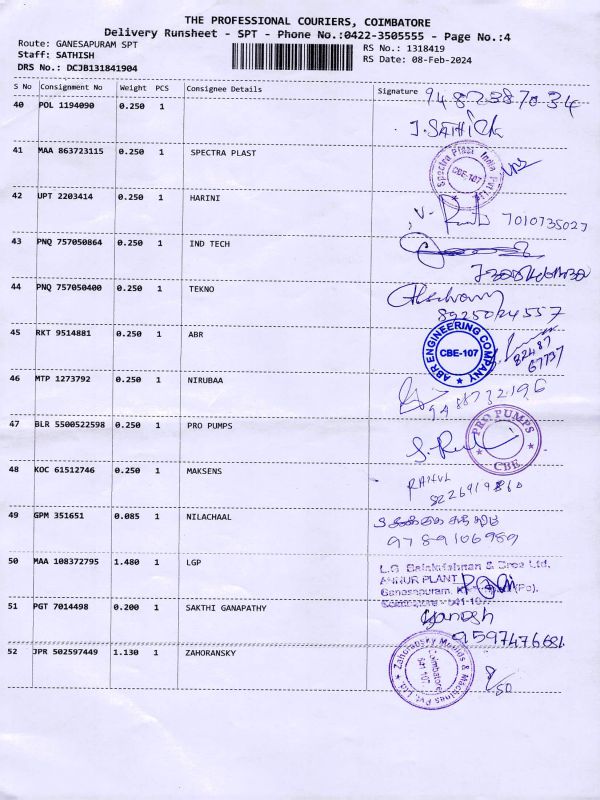 THE PROFESSIONAL COURIERS, COIMBATORE
Delivery Runsheet - SPT - Phone No.:0422-3505555 - Page No.:4
Route: GANESAPURAM SPT
RS No.: 1318419
Staff: SATHISH
RS Date: 08-Feb-2024
DRS No.: DCJB131841904
S No Consignment No Weight PCS Consignee Details Signature
9482387034
40 POL 1194090 0.250 1
J. SATHICK
41 MAA 863723115 0.250 1 SPECTRA PLAST
Spectra Plast India Pvt Ltd CBE-107
42 UPT 2203414 0.250 1 HARINI
7010735027
43 PNQ 757050864 0.250 1 IND TECH
44 PNQ 757050400 0.250 1 TEKNO
8925024557
45 RKT 9514881 0.250 1 ABR
ABR ENGINEERING COMPANY CBE-107
82487
67737
46 MTP 1273792 0.250 1 NIRUBAA
9488732196
47 BLR 5500522598 0.250 1 PRO PUMPS
PRO PUMPS CBE
48 KOC 61512746 0.250 1 MAKSENS
RAHUL
49 GPM 351651 0.085 1 NILACHAAL
9789106989
50 MAA 108372795 1.480 1 LGP
L.G. Balakrishnan & Bros Ltd.
ANNUR PLANT
Ganesapuram, (Po),
Coimbatore - 641-107
51 PGT 7014498 0.200 1 SAKTHI GANAPATHY
Ganesh
9597476681
52 JPR 502597449 1.130 1 ZAHORANSKY
Zahoransky Moulds & Machines Pvt. Ltd. Coimbatore 641 107